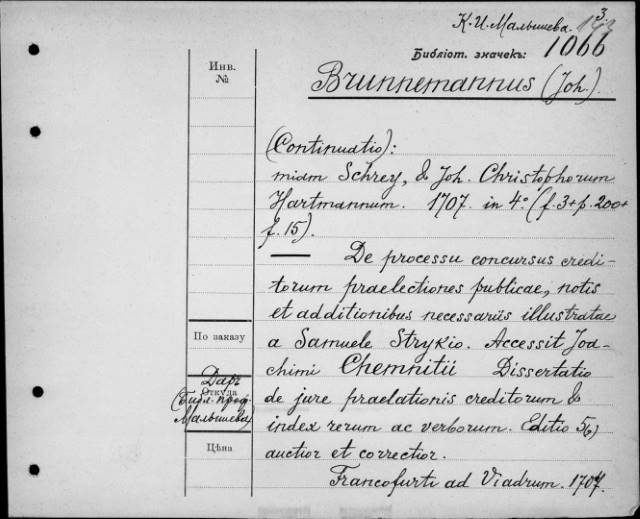 К. И. Малышева. 3
Библіот. значекъ: 1066
Инв.
№
Brunnemannus (Joh.)
(Continuatio):
miam Schrey, & Joh. Christophorum
Hartmannum. 1707. in 4° (f. 3 + p. 200 +
f. 15).
— De processu concursus credi-
torum praelectiones publicae, notis
et additionibus necessariis illustratae
a Samuele Strykio. Accessit Joa-
chimi Chemnitii Dissertatio
de jure praelationis creditorum &
index rerum ac verborum. Editio 5(,)
auctior et correctior.
Francofurti ad Viadrum. 1707.
По заказу
Даръ
Откуда
(Библ. проф.
Малышева)
Цѣна